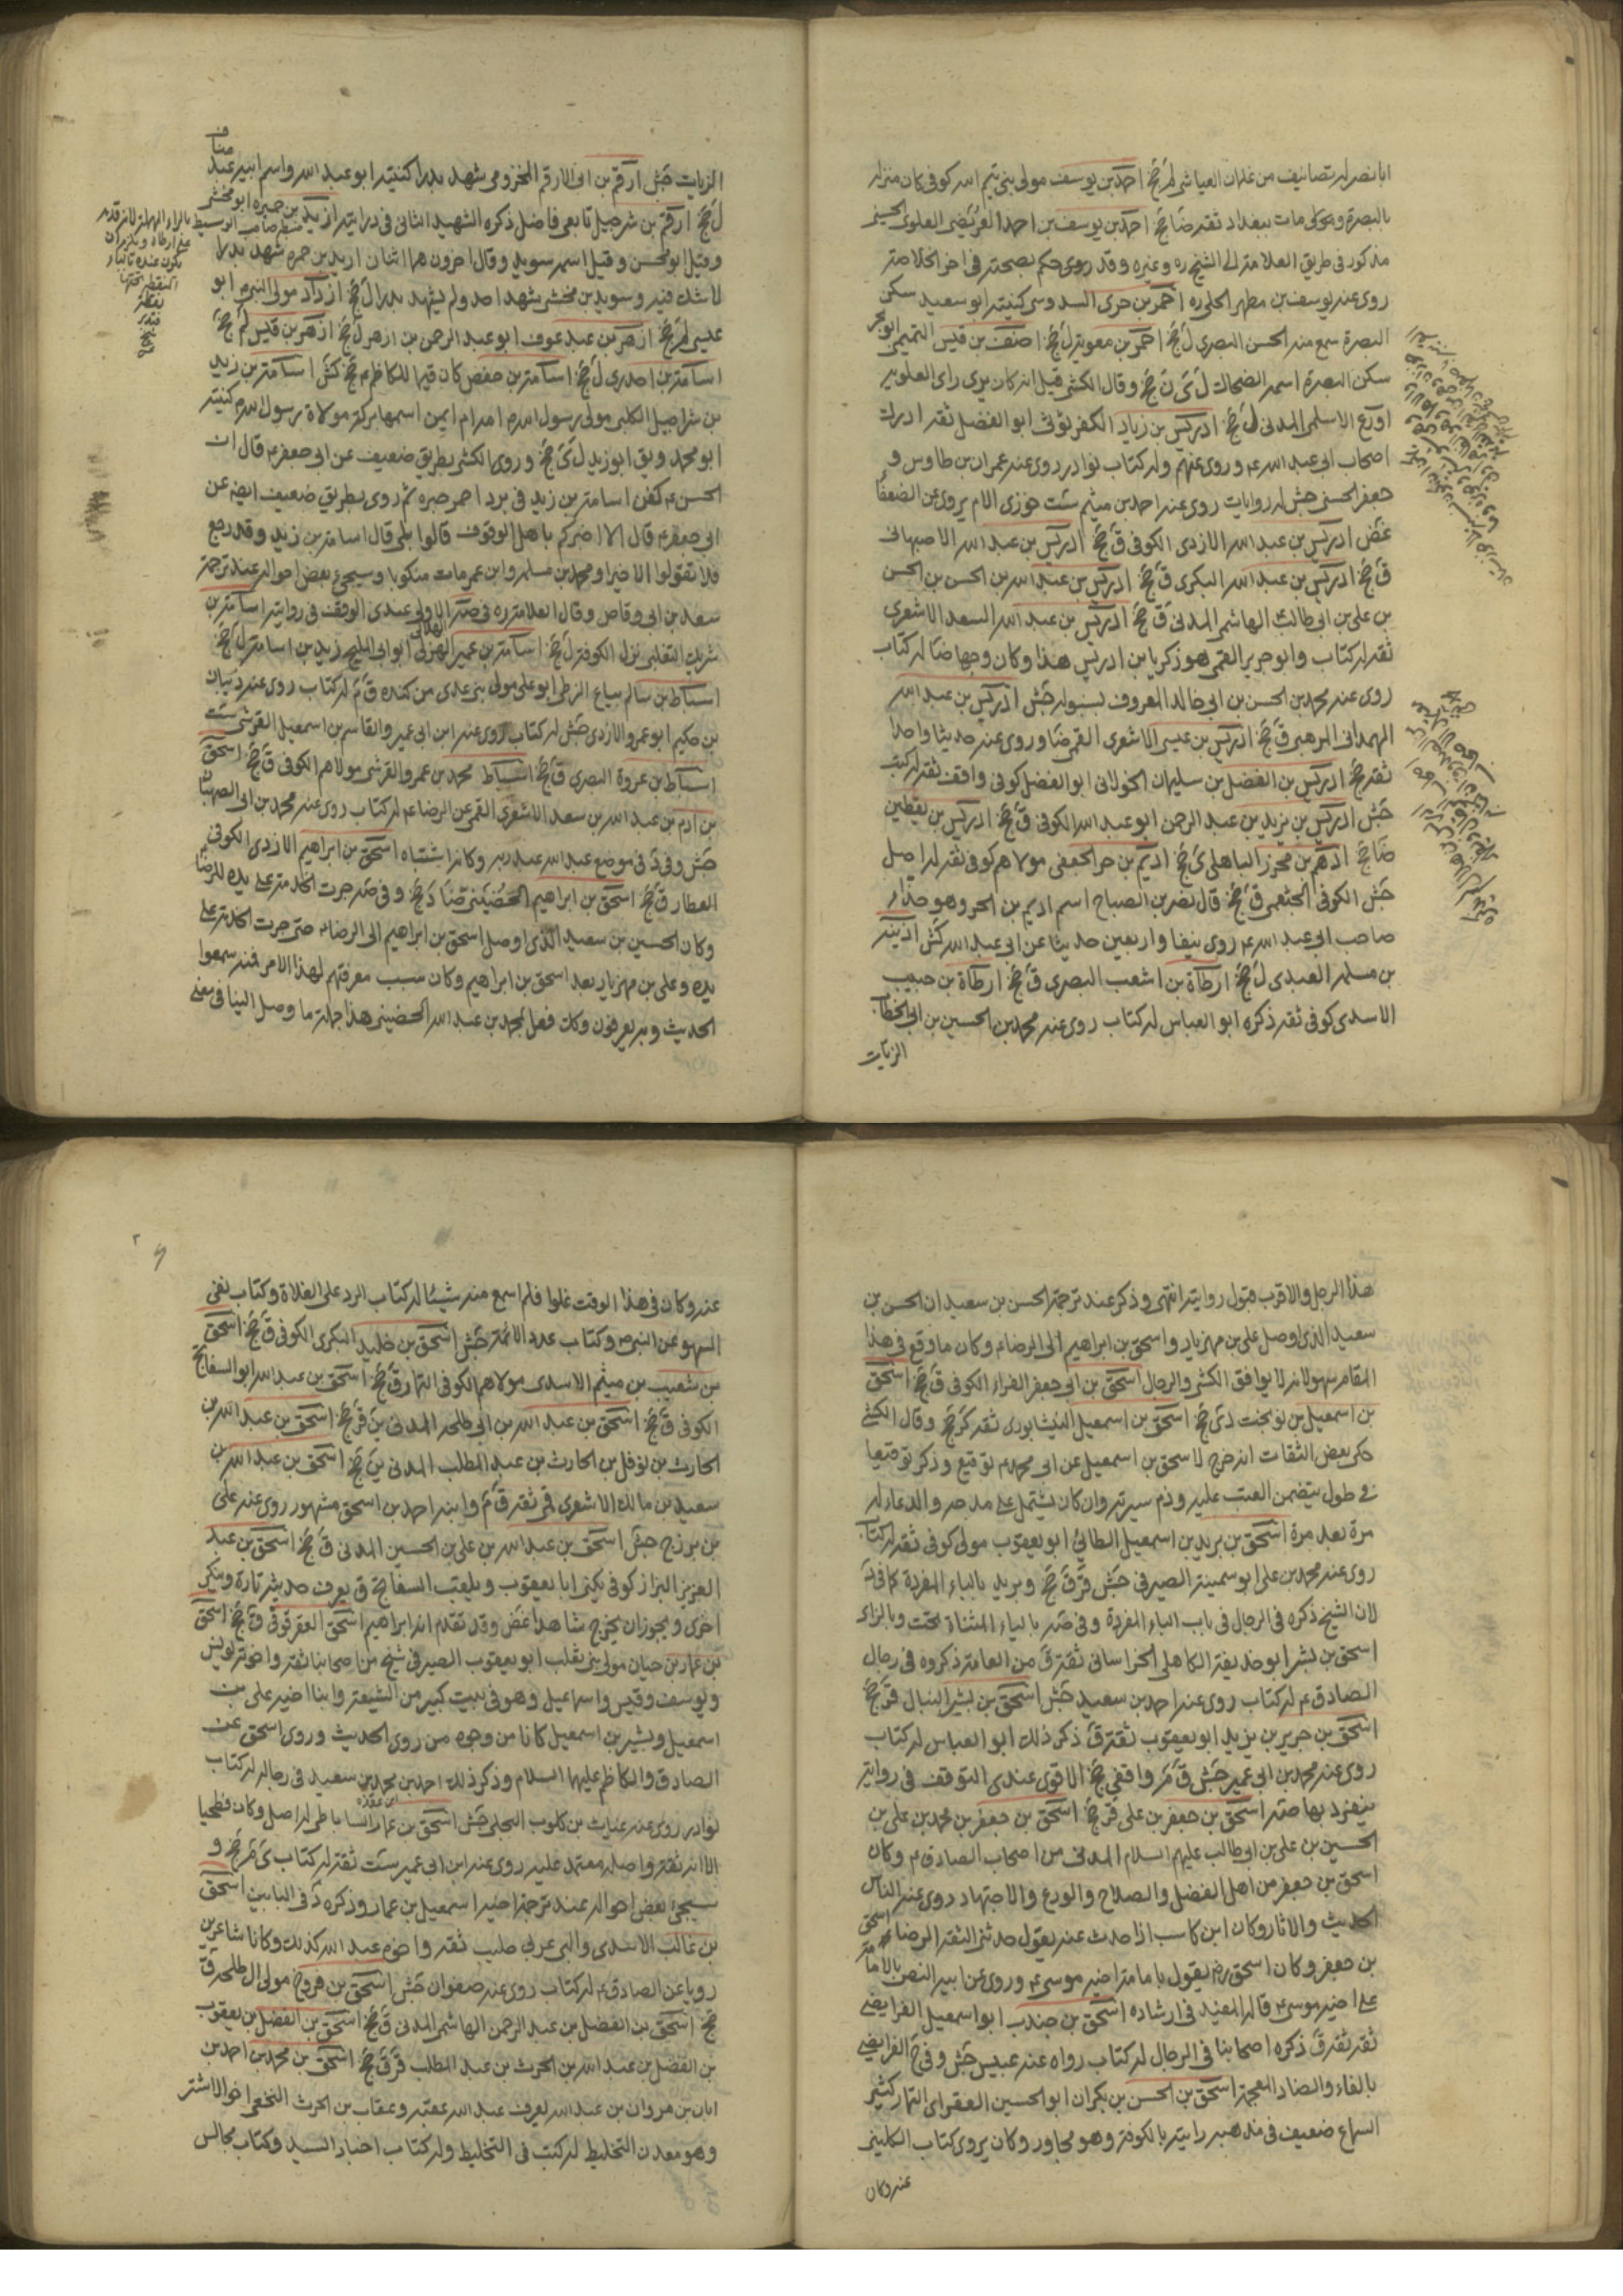 ابا نصر له تصانيف من غلمان العياشى لم جخ احمد بن يوسف مولى بنى تيم الله كوفى كان منزله
بالبصرة ومولى مات ببغداد ثقة ضا جخ احمد بن يوسف بن احمد العريضى العلوى الحسينى
مذكور فى طريق العلامة الى الشيخ ره وغيره وقد روى حكم بصحته فى اخر الخلاصة
روى عنه يوسف بن مطهر الحلى ره احمر بن جرى السدوسى كنيته ابو سعيد سكن
البصرة سمع منه الحسن البصرى ل جخ احمر بن معوية ل جخ احنف بن قيس التميمى ابو بحر
سكن البصرة اسمه الضحاك ل ى ن جخ وقال الكشى قيل انه كان يرى راى العلوية
اورع الاسلمى المدنى ل جخ ادريس بن زياد الكفرثوثى ابو الفضل ثقة ادرك
اصحاب ابى عبد الله ع وروى عنهم وله كتاب نوادر روى عنه عمران بن طاوس و
جعفر الحسنى جش له روايات روى عنه احمد بن ميثم ست خوزى الام يروى عن الضعفا
غض ادريس بن عبد الله الازدى الكوفى ق جخ ادريس بن عبد الله الاصبهانى
ق جخ ادريس بن عبد الله البكرى ق جخ ادريس بن عبد الله بن الحسن بن الحسن
بن على بن ابى طالب الهاشمى المدنى ق جخ ادريس بن عبد الله السعد الاشعرى
ثقة له كتاب وابو جرير القمى هو زكريا بن ادريس هذا وكان وجها ضا له كتاب
روى عنه محمد بن الحسن بن ابى خالد المعروف بشنبوله جش ادريس بن عبد الله
الهمدانى المرهبى ق جخ ادريس بن عيسى الاشعرى القمى ضا وروى عنه حديثا واحدا
ثقة جخ ادريس بن الفضل بن سليمان الخولانى ابو الفضل كوفى واقف ثقة له كتب
جش ادريس بن يزيد بن عبد الرحمن ابو عبد الله الكوفى ق جخ ادريس بن يقطين
ضا جخ ادهم بن محرز الباهلى ى جخ اديم بن حر الجعفى مولاهم كوفى ثقة له اصل
جش الكوفى الخثعمى ق جخ قال نصر بن الصباح اسم اديم بن الحر وهو حذاء
صاحب ابى عبد الله ع روى نيفا واربعين حديثا عن ابى عبد الله كش اذينة
بن مسلمه العبدى ل جخ ارطاة بن اشعب البصرى ق جخ ارطاة بن حبيب
الاسدى كوفى ثقة ذكره ابو العباس له كتاب روى عنه محمد بن الحسين بن ابى الخطاب
الزيات
الزيات جش ارقم بن ابى الارقم المخزومى شهد بدرا كنيته ابو عبد الله واسم ابيه عبد مناف
ل جخ ارقم بن شرحبيل تابعى فاضل ذكره الشهيد الثانى فى درايته اربد بن حميره ابو مخشى
وقيل ابو الحسن وقيل اسمه سويد وقال اخرون هما اثنان اربد بن حمره شهد بدرا
لا شك فيه وسويد بن مخشى شهد احد ولم يشهد بدرا ل جخ ازداد مولى النبى ص ابو
عيسى ل جخ ازهر بن عبد عوف ابو عبد الرحمن بن ازهر ل جخ ازهر بن قيس ل جخ
اسامة بن اخدرى ل جخ اسامة بن حفص كان قيما للكاظم ع جخ كش اسامة بن زيد
بن شراحيل الكلبى مولى رسول الله ص امه ام ايمن اسمها بركة مولاة رسول الله ص كنيته
ابو محمد ويق ابو زيد ل ى جخ وروى الكشى بطريق ضعيف عن ابى جعفر ع قال ان
الحسن ع كفن اسامة بن زيد فى برد احمر حبره ثم روى بطريق ضعيف ايضه عن
ابى جعفر ع قال الا اخبركم باهل الوقوف قالوا بلى قال اسامة بن زيد وقد رجع
فلا تقولوا الا خيرا ومحمد بن مسلمه وابن عمر مات منكوبا وسيجئ بعض احواله عند ترجمة
سعد بن ابى وقاص وقال العلامة ره فى صه الاولى عندى الوقف فى روايته اسامة بن
شريك الثعلبى نزل الكوفة ل جخ اسامة بن عمير الهذلى ابو ابى المليح زيد بن اسامة ل جخ
اسباط بن سالم بياع الزطى ابو على مولى بنى عدى من كنده ق م له كتاب روى عنه ذبيان
بن حكيم ابو عمرو الازدى جش له كتاب روى عنه ابن ابى عمير والقاسم بن اسمعيل القرشى ست
اسباط بن عروة البصرى ق جخ اسباط محمد بن عمرو القرشى مولاهم الكوفى ق جخ اسحق
بن ادم بن عبد الله بن سعد الاشعرى القمى عن الرضا ع له كتاب روى عنه محمد بن ابى الصهبان
جش وفى د فى موضع عبد الله عبد ربه وكانه اشتباه اسحق بن ابراهيم الازدى الكوفى
العطار ق جخ اسحق بن ابراهيم الحضينى ضا د جخ وفى صه جرت الخدمة على يده للرضا
وكان الحسين بن سعيد الذى اوصل اسحق بن ابراهيم الى الرضا ع حتى جرت الخدمة على
يده وعلى بن مهزيار بعد اسحق بن ابراهيم وكان سبب معرفتهم لهذا الامر فمنه سمعوا
الحديث وبه يعرفون وكك فعل بمحمد بن عبد الله الحضينى هذا جملة ما وصل الينا فى معنى
هذا الرجل والاقرب قبول روايته انتهى وذكر عند ترجمة الحسن بن سعيد ان الحسن بن
سعيد الذى اوصل على بن مهزيار واسحق بن ابراهيم الى الرضا ع وكان ما وقع فى هذا
المقام سهوا لانه لا يوافق الكشى والرجال اسحق بن ابى جعفر الفراء الكوفى ق جخ اسحق
بن اسمعيل بن نوبخت دى جخ اسحق بن اسمعيل النيشابورى ثقة كر جخ وقال الكشى
حكى بعض الثقات انه خرج لاسحق بن اسمعيل عن ابى محمد ع توقيع وذكر توقيعا
فى طول يتضمن العتب عليه وذم سيرته وان كان يشتمل على مدحه والدعاء له
مرة بعد مرة اسحق بن بريد بن اسمعيل الطائى ابو يعقوب مولى كوفى ثقة له كتاب
روى عنه محمد بن على ابو سمينة الصيرفى جش قر ق جخ وبريد بالباء المفردة كما فى د
لان الشيخ ذكره فى الرجال فى باب الباء المفردة وفى صه بالياء المثناة تحت وبالزاء
اسحق بن بشر ابو حذيفة الكاهلى الخراسانى ثقة ق من العامة ذكروه فى رجال
الصادق ع له كتاب روى عنه احمد بن سعيد جش اسحق بن بشر النبال قر جخ
اسحق بن جرير بن يزيد ابو يعقوب ثقة ق ذكر ذلك ابو العباس له كتاب
روى عنه محمد بن ابى عمير جش ق م ر واقفى جخ الاقوى عندى التوقف فى رواية
ينفرد بها صه اسحق بن جعفر بن على قر جخ اسحق بن جعفر بن محمد بن على بن
الحسين بن على بن ابى طالب عليهم السلام المدنى من اصحاب الصادق ع وكان
اسحق بن جعفر من اهل الفضل والصلاح والورع والاجتهاد روى عنه الناس
الحديث والاثار وكان ابن كاسب اذا حدث عنه يقول حدثنى الثقة الرضا اسحق
بن جعفر وكان اسحق ره يقول بامامة اخيه موسى ع وروى عن ابيه النص بالامامة
على اخيه موسى ع قاله المفيد فى ارشاده اسحق بن جندب ابو اسمعيل الفرايضى
ثقة ثقة ق ذكره اصحابنا فى الرجال له كتاب رواه عنه عبيس جش وفى ح الفرايضى
بالفاء والضاد المعجمة اسحق بن الحسن بن بكران ابو الحسين العقرابى التمار كثير
السماع ضعيف فى مذهبه رايته بالكوفة وهو مجاور وكان يروى كتاب الكلينى
عنه وكان
عنه وكان فى هذا الوقت غلوا فلم اسمع منه شيئا له كتاب الرد على الغلاة وكتاب نفى
السهو عن النبى ص وكتاب عدد الائمة جش اسحق بن خليد البكرى الكوفى ق جخ اسحق
بن شعيب بن ميثم الاسدى مولاهم الكوفى التمار ق جخ اسحق بن عبد الله ابو السفاتج
الكوفى ق جخ اسحق بن عبد الله بن ابى طلحه المدنى ين قر جخ اسحق بن عبد الله بن
الحارث بن نوفل بن الحارث بن عبد المطلب المدنى ين جخ اسحق بن عبد الله بن
سعيد بن مالك الاشعرى قمى ثقة ق م وابنه احمد بن اسحق مشهور روى عنه على
بن بزرج جش اسحق بن عبد الله بن على بن الحسين المدنى ق جخ اسحق بن عبد
العزيز البزاز كوفى يكنى ابا يعقوب ويلقب السفاتج ق يعرف حديثه تارة وينكر
اخرى ويجوز ان يخرج شاهدا غض وقد تقدم انه ابراهيم اسحق العقرقوفى ق جخ اسحق
بن عمار بن حيان مولى بنى تغلب ابو يعقوب الصيرفى شيخ من اصحابنا ثقة واخوته يونس
ويوسف وقيس واسماعيل وهو فى بيت كبير من الشيعة وابنا اخيه على بن
اسمعيل وبشير بن اسمعيل كانا من وجوه من روى الحديث وروى اسحق عن
الصادق والكاظم عليهما السلام وذكر ذلك احمد بن محمد بن سعيد فى رجاله له كتاب
ابن عقده
نوادر روى عنه غياث بن كلوب البجلى جش اسحق بن عمار الساباطى له اصل وكان فطحيا
الا انه ثقة واصله معتمد عليه روى عنه ابن ابى عمير ست ثقة له كتاب ى ظم جخ و
سيجئ بعض احواله عند ترجمة اخيه اسمعيل بن عمار وذكره د فى البابين اسحق
بن غالب الاسدى والبى عربى صليب ثقة واخوه عبد الله كذلك وكانا شاعرين
رويا عن الصادق ع له كتاب روى عنه صفوان جش اسحق بن فروخ مولى ال طلحه ق
جخ اسحق بن الفضل بن عبد الرحمن الهاشمى المدنى ق جخ اسحق بن الفضل بن يعقوب
بن الفضل بن عبد الله بن الحرث بن عبد المطلب قر ق جخ اسحق بن محمد بن احمد بن
ابان بن مروان بن عبد الله يعرف عبد الله عقبه وعقاب بن الحرث النخعى اخو الاشتر
وهو معدن التخليط له كتب فى التخليط وله كتاب اخبار السيد وكتاب مجالس